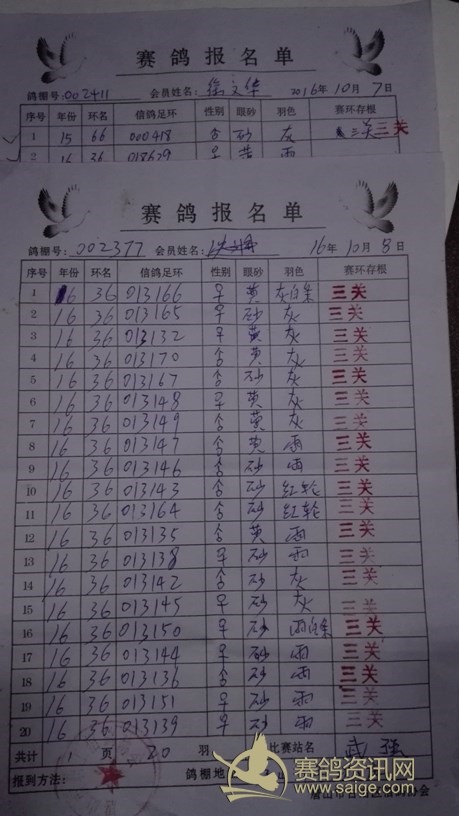 赛鸽报名单
鸽棚号:002411 会员姓名: 徐文华 2016年10月7日
序号 年份 环名 信鸽足环 性别 眼砂 羽色 赛环存根
1 15 66 000418 合 砂 灰 三关三关
2 16 36 018629 早 黄 雨
赛鸽报名单
鸽棚号:002377 会员姓名: 16年10月8日
序号 年份 环名 信鸽足环 性别 眼砂 羽色 赛环存根
1 16 36 013166 早 黄 灰白条 三关
2 16 36 013165 早 砂 灰 三关
3 16 36 013132 早 黄 灰 三关
4 16 36 013170 合 黄 灰 三关
5 16 36 013167 合 砂 灰 三关
6 16 36 013148 早 黄 灰 三关
7 16 36 013149 合 黄 灰 三关
8 16 36 013147 合 黄 雨 三关
9 16 36 013146 合 砂 雨 三关
10 16 36 013143 合 砂 红轮 三关
11 16 36 013164 合 砂 红轮 三关
12 16 36 013135 合 黄 雨 三关
13 16 36 013138 早 砂 雨 三关
14 16 36 013142 合 砂 灰 三关
15 16 36 013145 早 砂 灰 三关
16 16 36 013150 早 砂 雨白条 三关
17 16 36 013144 早 砂 雨 三关
18 16 36 013136 合 砂 雨 三关
19 16 36 013151 早 砂 雨 三关
20 16 36 013139 早 砂 雨 三关
共计 1 页 20 羽 比赛站名 武强
报到方法: 鸽棚地
赛鸽资讯网
www.saige.com